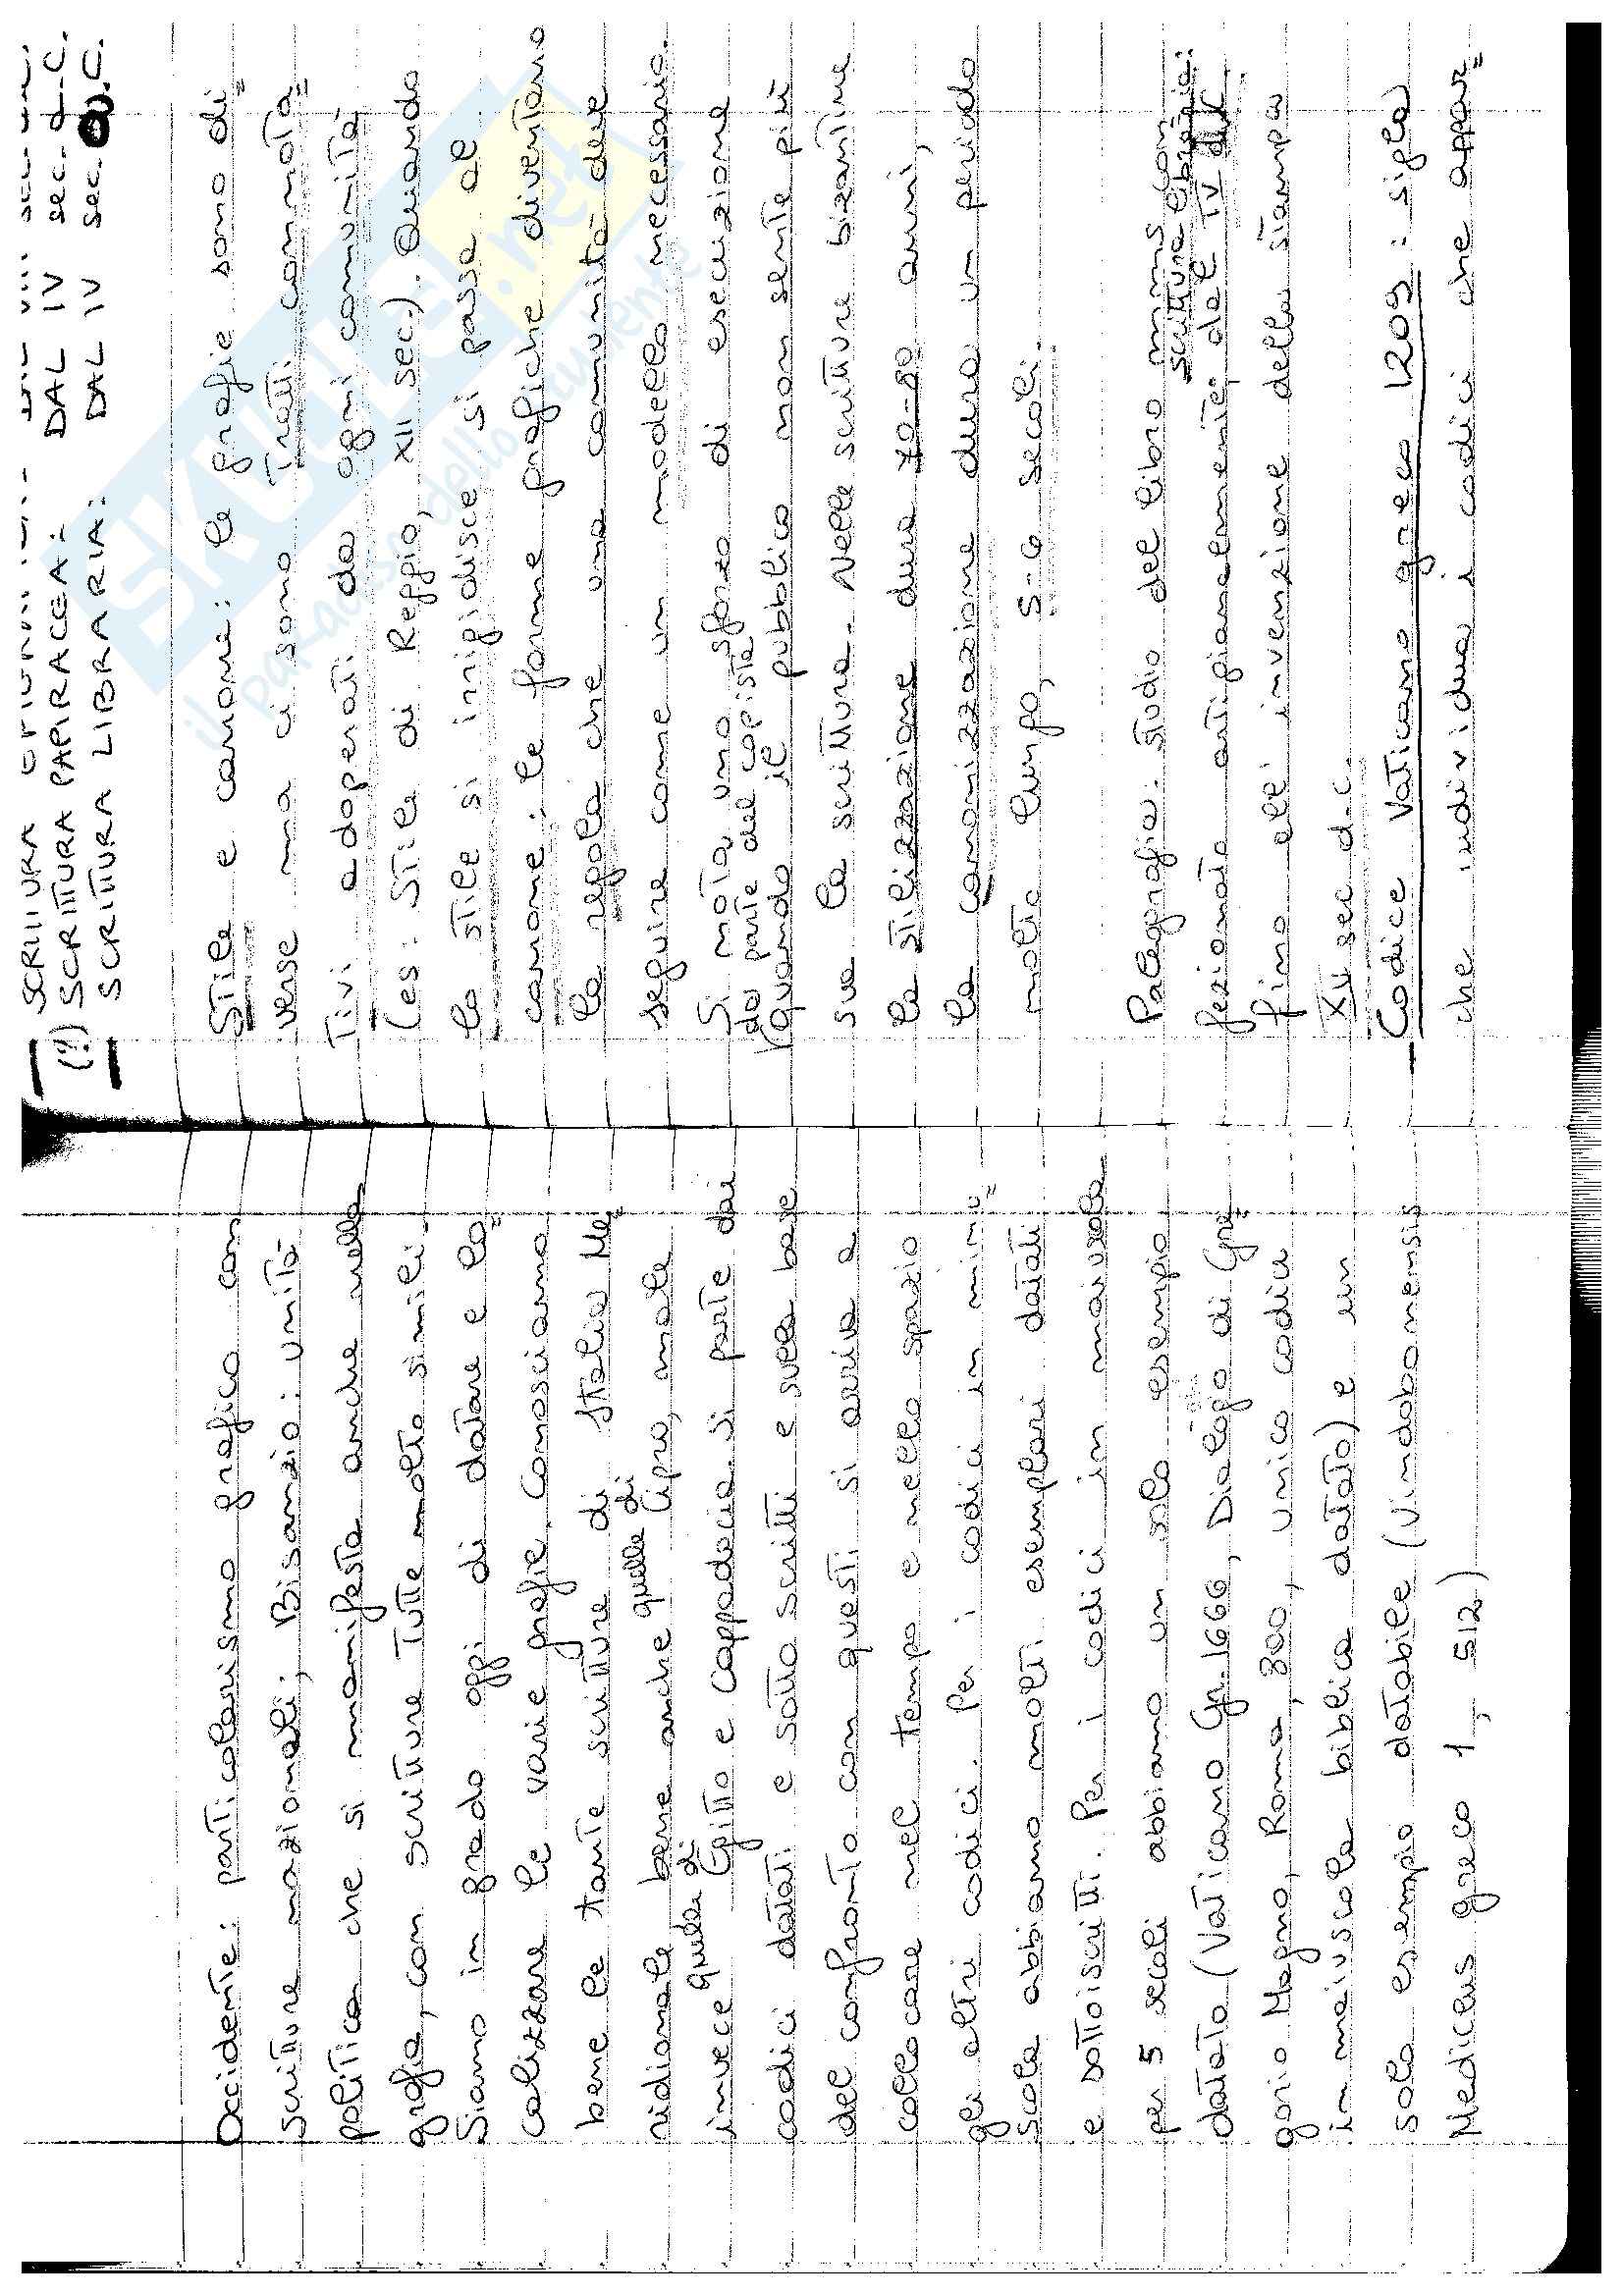 Occidente: particolarismo grafico con
scritture nazionali; Bisanzio: unità
politica che si manifesta anche nella
grafia, con scritture tutte molto simili.
Siamo in grado oggi di datare e lo=
calizzare le varie grafie. Conosciamo
bene le tante scritture di Italia Me=
ridionale bene anche quelle di Cipro, male
invece quelle di Egitto e Cappadocia. Si parte dai
codici datati e sotto scritti e sulla base
del confronto con questi si arriva a
collocare nel tempo e nello spazio
gli altri codici. Per i codici in minu=
scola abbiamo molti esemplari datati
e sottoiscritti. Per i codici in maiuscola
per 5 secoli abbiamo un solo esempio
datato (Vaticano Gr. 1666, Dialogo di Gre=
gorio Magno, Roma, 800, unico codice
in maiuscola biblica datato) e un
solo esempio databile (Vindobonensis
Medicus Greco 1_, 512)
SCRITTURA
(?) SCRITTURA PAPIRACEA: DAL IV sec. d.C.
SCRITTURA LIBRARIA: DAL IV sec. a.C.
Stile e canone: le grafie sono di=
verse ma ci sono tratti connota=
tivi adoperati da ogni comunità
(es. Stile di Reggio, XII sec.). Quando
lo stile si irrigidisce si passa al
canone: le forme grafiche diventano
la regola che una comunità deve
seguire come un modello necessario.
Si nota uno sforzo di esecuzione
da parte del copista
quando il pubblico non sente più
sua la scrittura. Nelle scritture bizantine
la stilizzazione dura 70-80 anni,
la canonizzazione dura un periodo
molto lungo, 5-6 secoli.
Paleografia: studio del libro manus con
scrittura libraria:
fezionato artigianalmente; dal IV a.C.
fino all'invenzione della stampa
XV sec d.C.
Codice Vaticano greco 1209: sigla
che individua i codici che appar=
SKUOLA.net
il paradiso dello studente